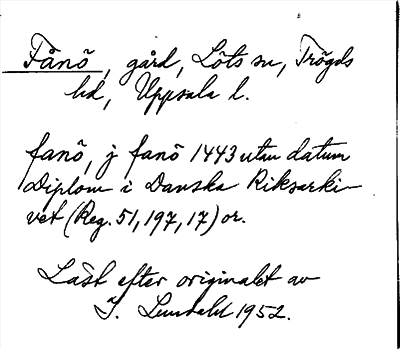 Fånö, gård, Löts sn, Trögds
hd, Uppsala l.
fanö, j fanö 1443 utan datum
Diplom i Danska Riksarki-
vet (Reg. 51, 197, 17) or.
Läst efter originalet av
I. Lundahl 1952.